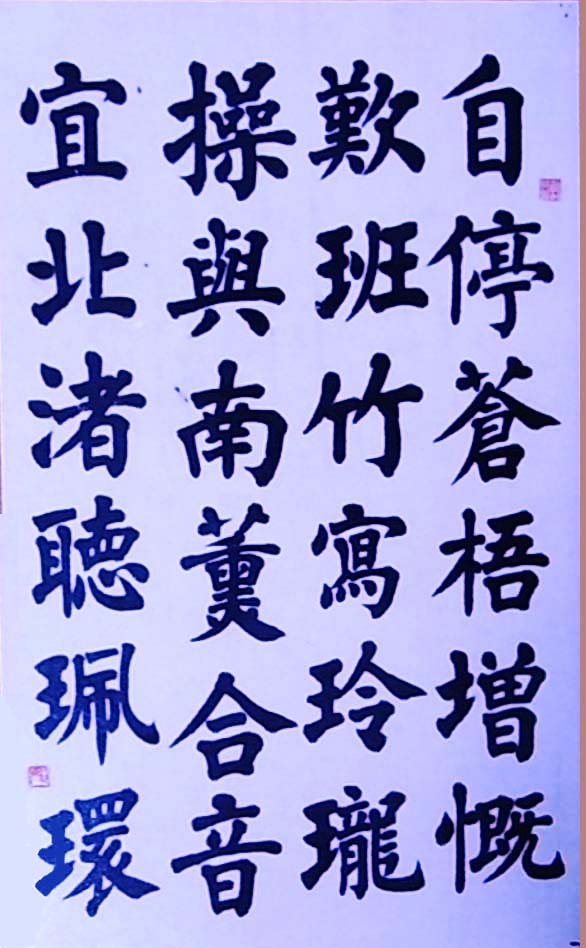 自停蒼梧增慨
歎班竹寫玲瓏
操與南薰合音
宜北渚聽珮環